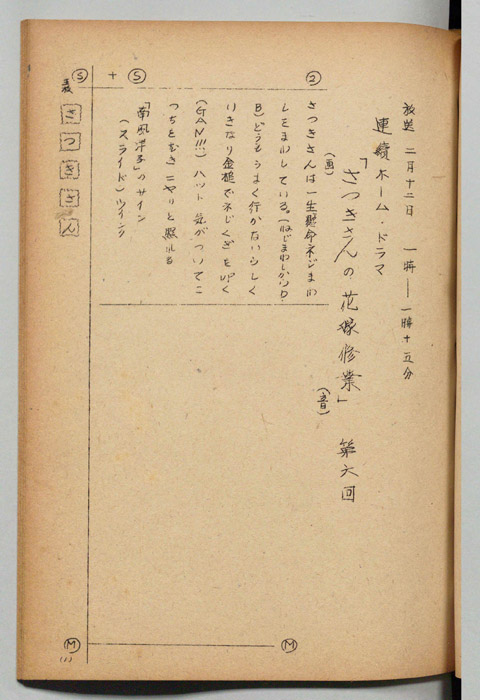 放送 二月十二日 一時——一時十五分
連續ホーム・ドラマ
「さつきさんの花嫁修業」 第六回
(画)
(音)
②
さつきさんは一生懸命ネジまわ
しをまわしている。(ねじまわしからD.
B)どうもうまく行かないらしく
いきなり金槌でネジくぎを叩く
(GAN!!!)ハット気がついてこ
っちをむきニヤリと照れる
「南風洋子」のサイン
(スライド)ウイング
Ⓢ
+
Ⓢ
裏
さつきさん
Ⓜ
Ⓜ
(1)